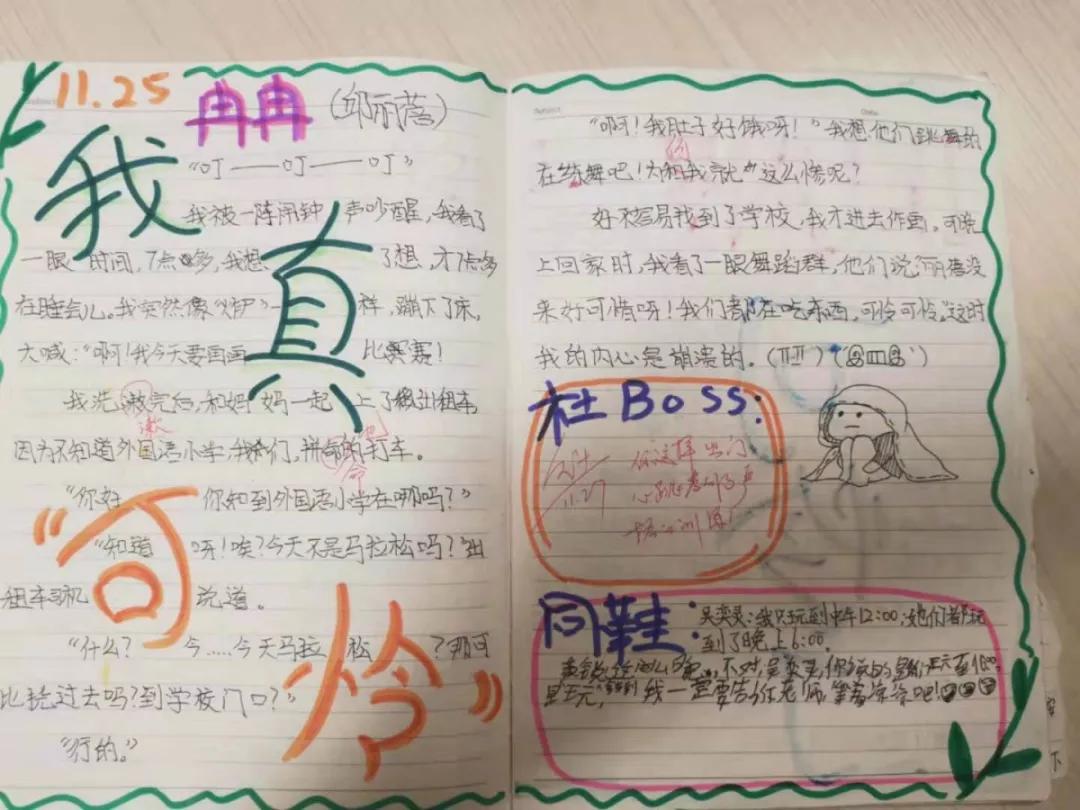 11.25
冉冉(邱丽蓓)
我真可怜
“叮——叮——叮”
我被一阵闹钟声吵醒,我看了
一眼时间,7点多,我想了想,才7点多
在睡会儿。我突然像“炉”一样,蹦下了床,
大喊:“啊!我今天要画画比赛赛!
我洗漱完后,和妈妈一起上了出租车,
因为不知道外国语小学,我们,拼命的打车。
漱
命
“你好 你知到外国语小学在哪吗?”
“知道呀!唉?今天不是马拉松吗?”出
租车司机说道。
“什么?今……今天马拉松?那可
比绕过去吗?到学校门口?”
“行的。”
“啊!我肚子好饿呀!”我想他们跳舞的
在练舞吧!为啥我就这么惨呢?
好不容易找到了学校,我才进去作画。可晚
上回家时,我看了一眼舞蹈群,他们说丽蓓没
来好可惜呀!我们都在吃东西,可怜可怜。”这时
我的内心是崩溃的。
杜Boss:
11.27
你这样出门
同鞋:
吴奕灵:我只玩到中午12:00,她们都玩
到了晚上6:00。
不对,吴奕灵,你
我一定要告诉任老师,等着